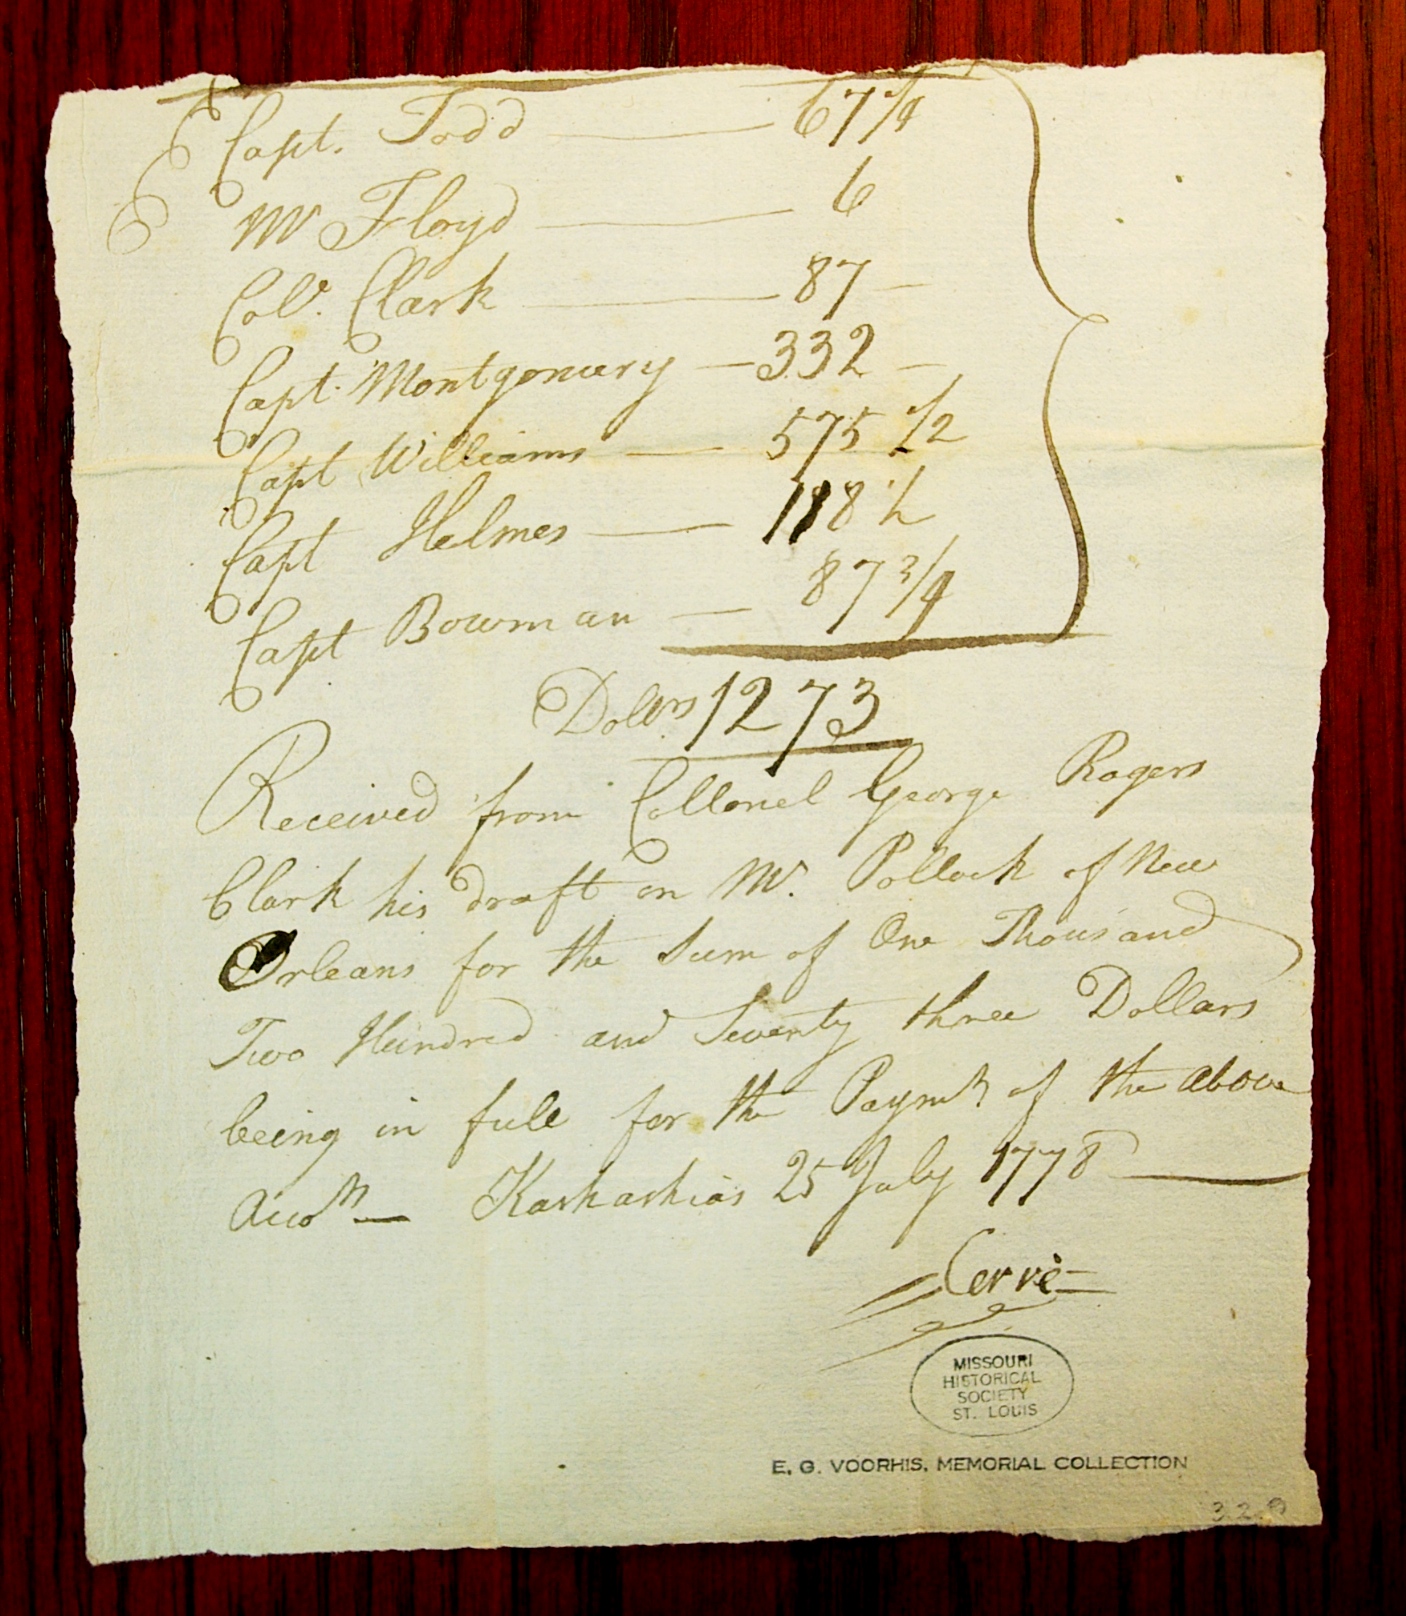 Capt. Todd — 67 1/4
Mr Floyd — 6
Col. Clark — 87 —
Capt. Montgomery — 332 —
Capt Williams — 575 1/2
Capt Helmes — 118 1/2
Capt Bowman — 87 3/4
Dollrs 1273
Received from Collonel George Rogers
Clark his draft on Mr. Pollock of New
Orleans for the Sum of One Thousand
Two Hundred and Seventy three Dollars
being in full for the Paymt of the above
Accots — Kaskaskias 25 July 1778 —
Cerrè
MISSOURI
HISTORICAL
SOCIETY
ST. LOUIS
E. G. VOORHIS, MEMORIAL COLLECTION
329